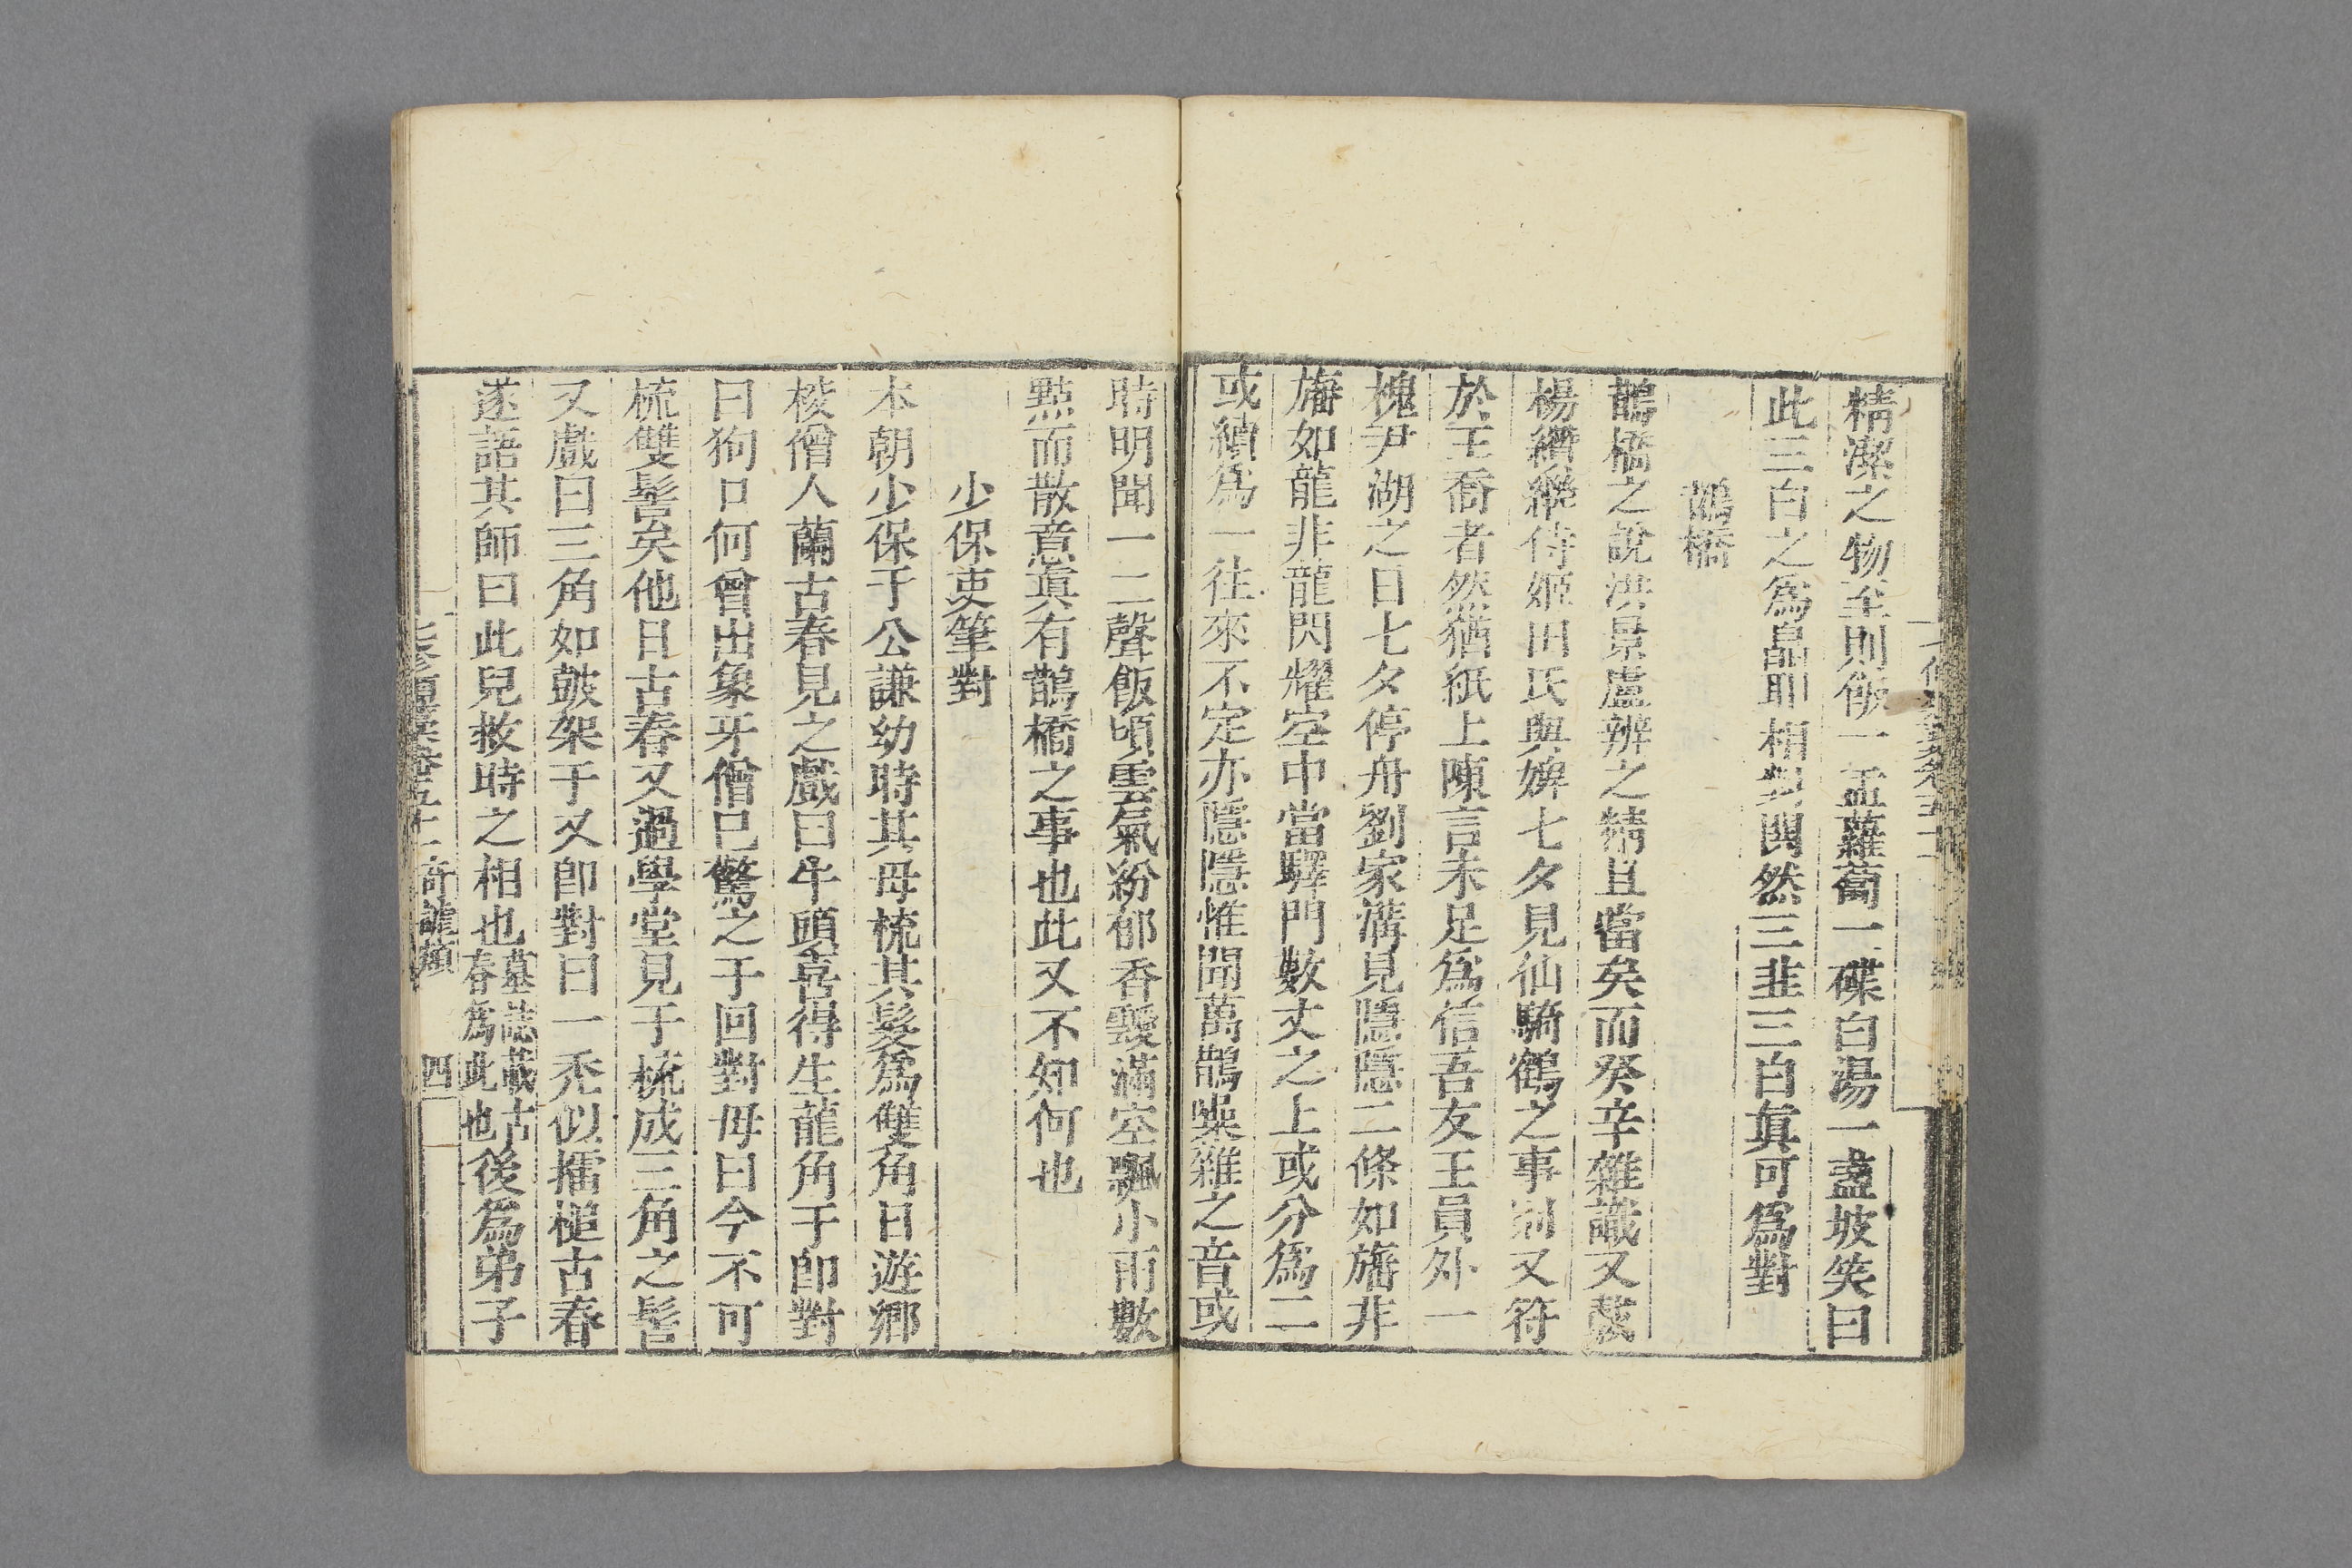 精潔之物至則飯一盂蘿蔔一碟白湯一盞坡笑曰
此三白之爲皛耶相對閧然三韭三白眞可爲對
鵲橋
鵲橋之說洪景盧辨之精且當矣而癸辛雜識又載
楊纘繼侍姬田氏與婢七夕見仙騎鶴之事則又符
於王喬者然猶紙上陳言未足爲信吾友王員外一
槐尹湖之日七夕停舟劉家溝見隱隱二條如旛非
旛如龍非龍閃耀空中當驛門數丈之上或分爲二
或續爲一往來不定亦隱隱惟聞萬鵲噪雜之音或
時明聞一二聲飯頃雲氣紛郁香靉滿空飄小雨數
點而散意眞有鵲橋之事也此又不知何也
少保吏筆對
本朝少保于公謙幼時其母梳其髮爲雙角日遊鄉
校僧人蘭古春見之戲曰牛頭喜得生龍角于即對
曰狗口何曾出象牙僧已驚之于回對母曰今不可
梳雙髻矣他日古春又過學堂見于梳成三角之髻
又戲曰三角如皷架于又即對曰一禿似擂槌古春
遂語其師曰此兒救時之相也墓誌載古春爲此也後爲弟子
七修類藁卷五十 奇謔類 四